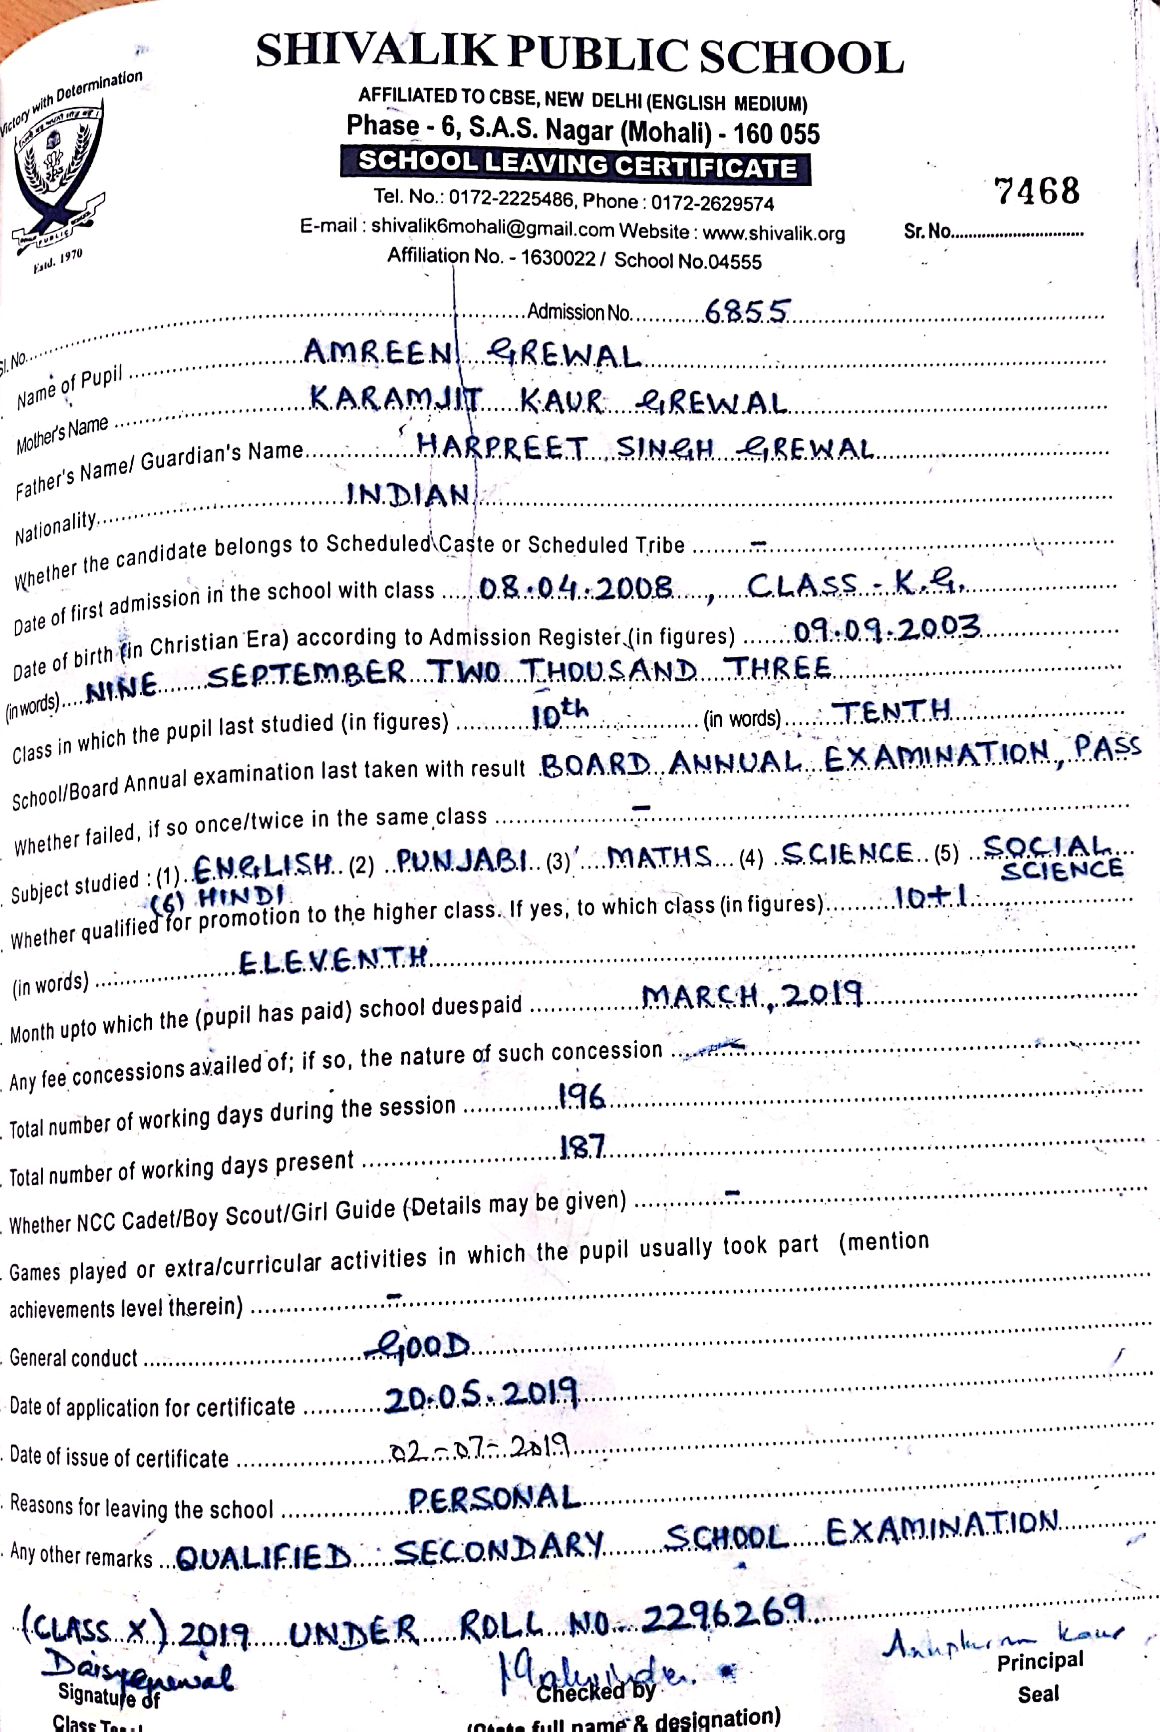 SHIVALIK PUBLIC SCHOOL
AFFILIATED TO CBSE, NEW DELHI (ENGLISH MEDIUM)
Phase - 6, S.A.S. Nagar (Mohali) - 160 055
SCHOOL LEAVING CERTIFICATE
Tel. No.: 0172-2225486, Phone : 0172-2629574
E-mail : shivalik6mohali@gmail.com Website : www.shivalik.org
Affiliation No. - 1630022 / School No.04555
Victory with Determination
PUBLIC SCHOOL
Estd. 1970
7468
Sr. No.
Sl. No. Admission No. 6855
Name of Pupil AMREEN GREWAL
Mother's Name KARAMJIT KAUR GREWAL
Father's Name/ Guardian's Name HARPREET SINGH GREWAL
Nationality INDIAN
Whether the candidate belongs to Scheduled Caste or Scheduled Tribe -
Date of first admission in the school with class 08.04.2008, CLASS - K.G.
Date of birth (in Christian Era) according to Admission Register (in figures) 09.09.2003
(in words) NINE SEPTEMBER TWO THOUSAND THREE
Class in which the pupil last studied (in figures) 10th (in words) TENTH
School/Board Annual examination last taken with result BOARD ANNUAL EXAMINATION, PASS
Whether failed, if so once/twice in the same class -
Subject studied : (1) ENGLISH (2) PUNJABI (3) MATHS (4) SCIENCE (5) SOCIAL SCIENCE
(6) HINDI
Whether qualified for promotion to the higher class. If yes, to which class (in figures) 10+1
(in words) ELEVENTH
Month upto which the (pupil has paid) school duespaid MARCH, 2019
Any fee concessions availed of; if so, the nature of such concession -
Total number of working days during the session 196
Total number of working days present 187
Whether NCC Cadet/Boy Scout/Girl Guide (Details may be given) -
Games played or extra/curricular activities in which the pupil usually took part (mention
achievements level therein) -
General conduct GOOD
Date of application for certificate 20.05.2019
Date of issue of certificate 02-07-2019
Reasons for leaving the school PERSONAL
Any other remarks QUALIFIED SECONDARY SCHOOL EXAMINATION
(CLASS X) 2019 UNDER ROLL NO- 2296269
Signature of Checked by Principal
Seal
Class
(State full name & designation)